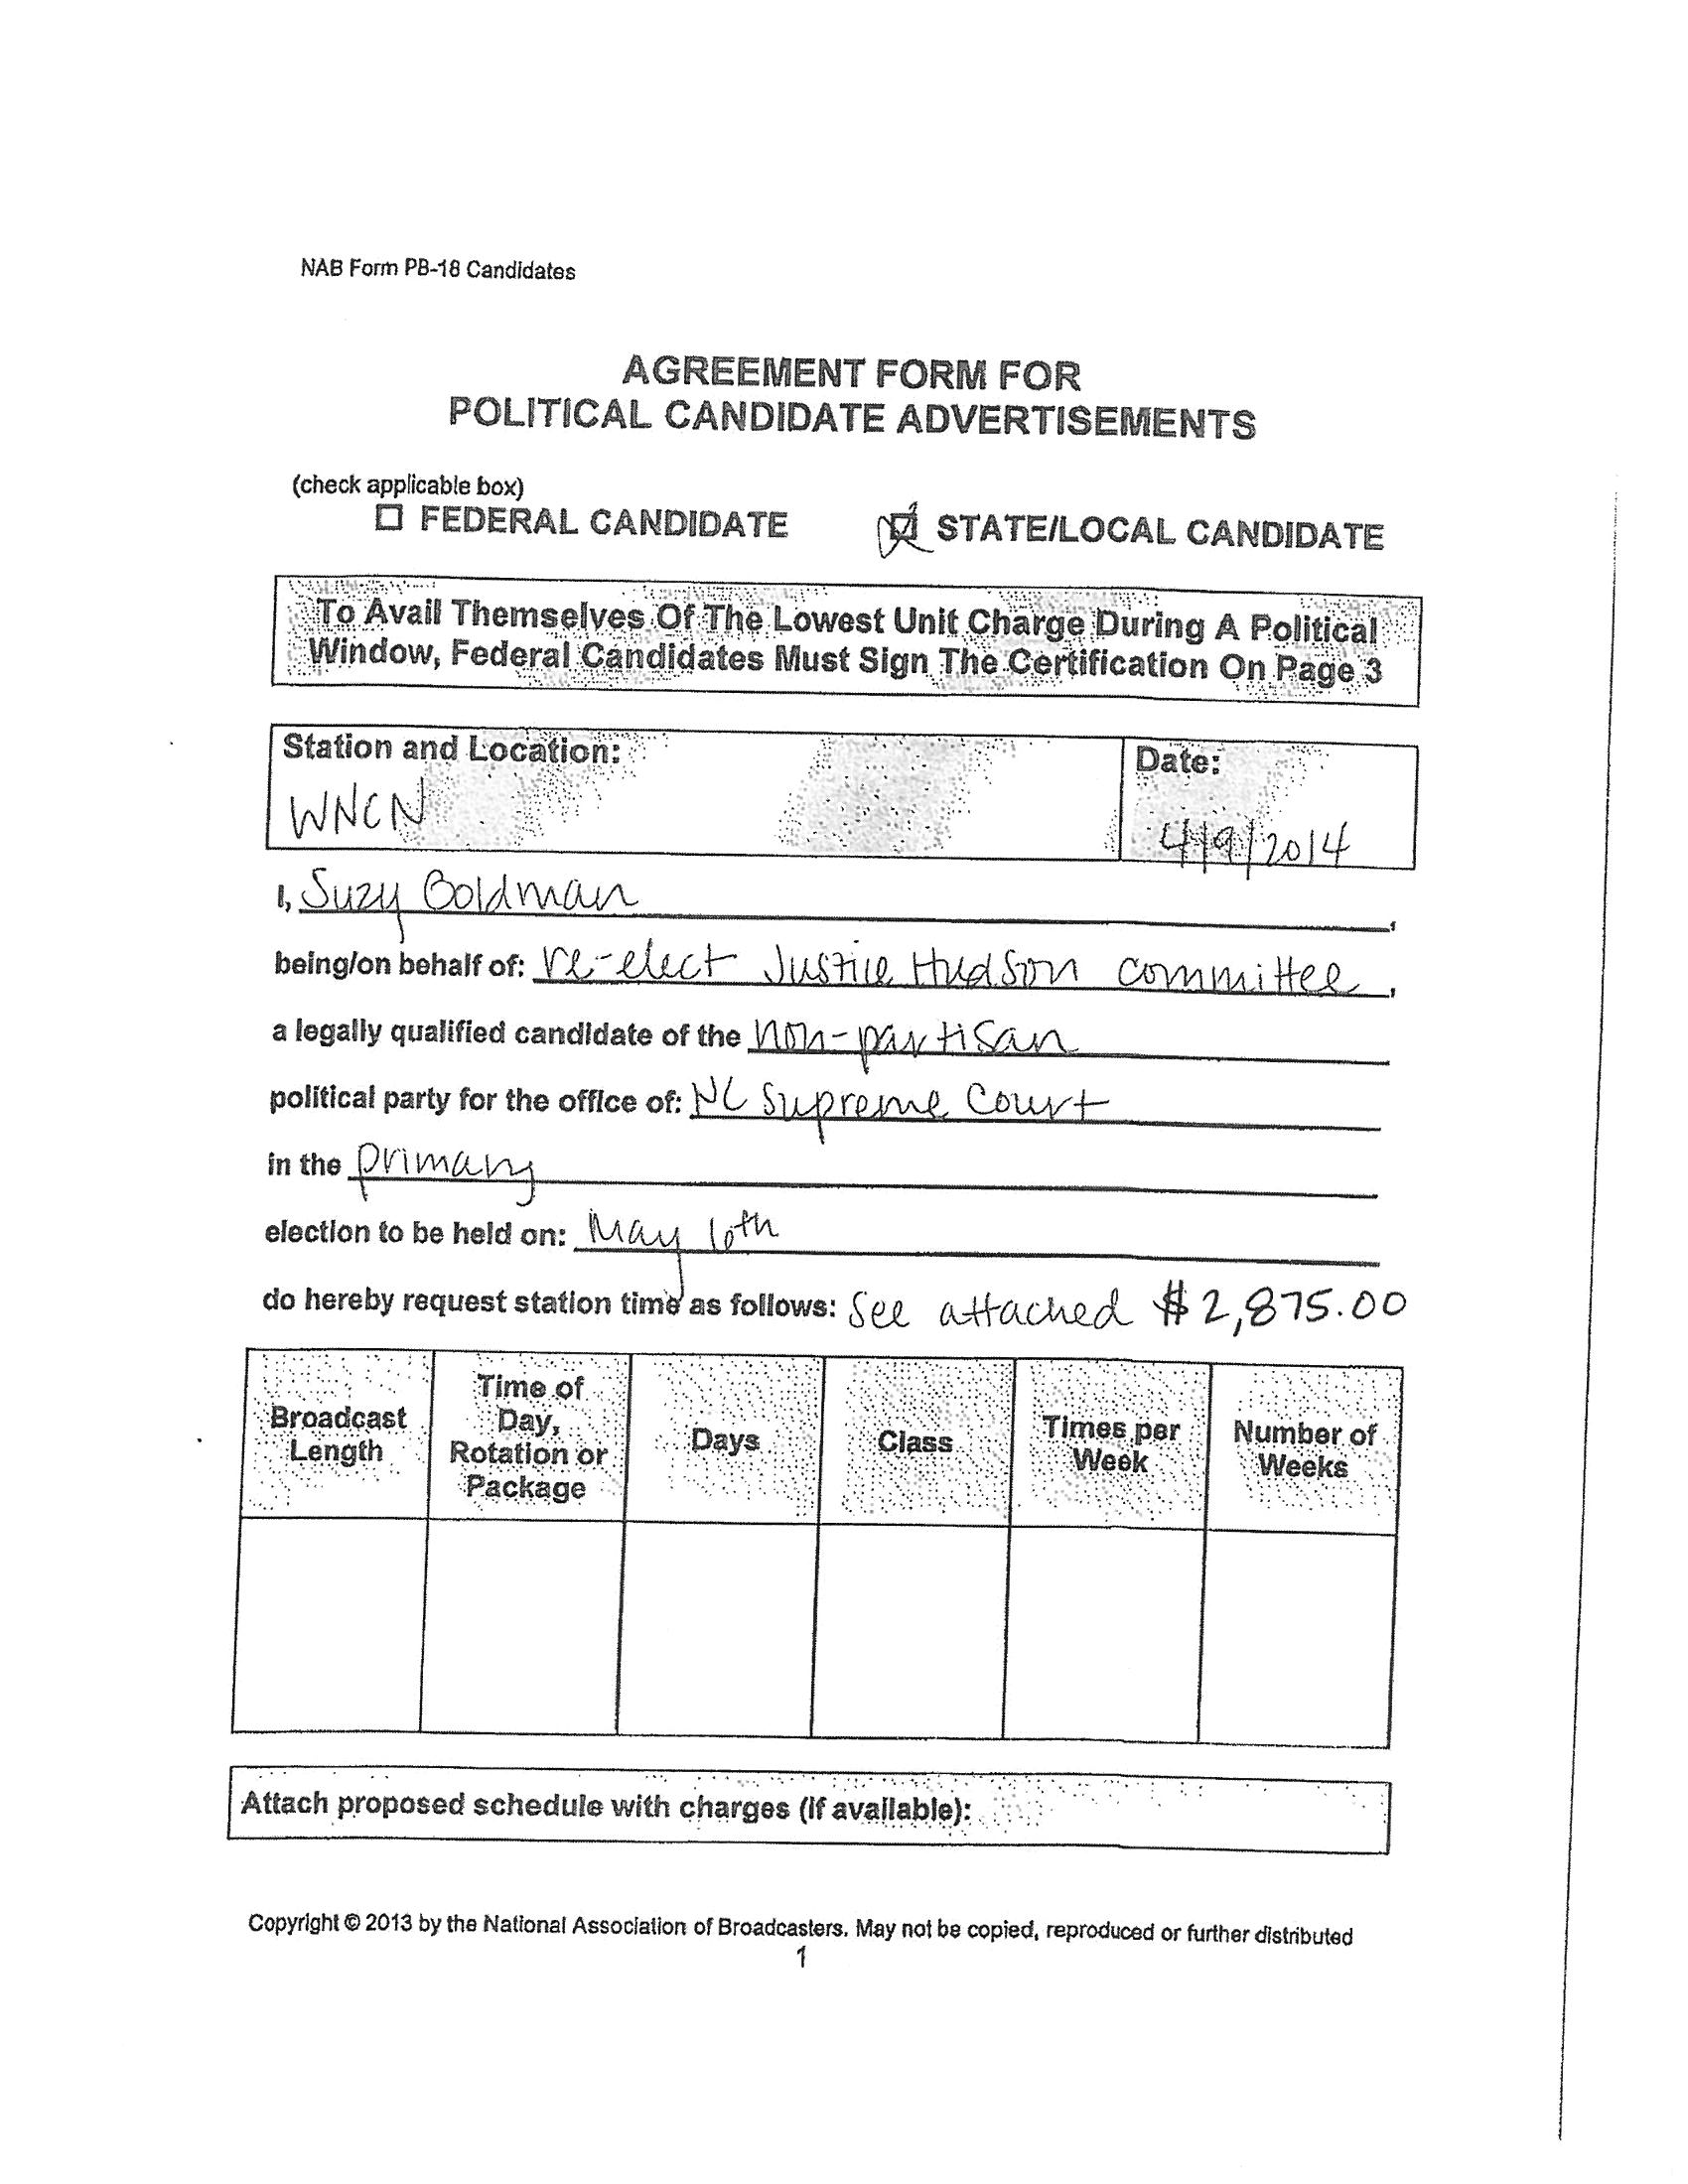 NAB Form PB-18 Candidates
AGREEMENT FORM FOR
POLITICAL CANDIDATE ADVERTISEMENTS
(check applicable box)
☐ FEDERAL CANDIDATE ☑ STATE/LOCAL CANDIDATE
To Avail Themselves Of The Lowest Unit Charge During A Political
Window, Federal Candidates Must Sign The Certification On Page 3
Station and Location: Date:
WNCN 4/9/2014
I, Suzy Goldman,
being/on behalf of: re-elect Justice Hudson committee,
a legally qualified candidate of the non-partisan
political party for the office of: NC Supreme Court
in the primary
election to be held on: May
do hereby request station time as follows: See attached $2,875.00
Broadcast Length
Time of Day, Rotation or Package
Days
Class
Times per Week
Number of Weeks
Attach proposed schedule with charges (if available):
Copyright © 2013 by the National Association of Broadcasters. May not be copied, reproduced or further distributed
1